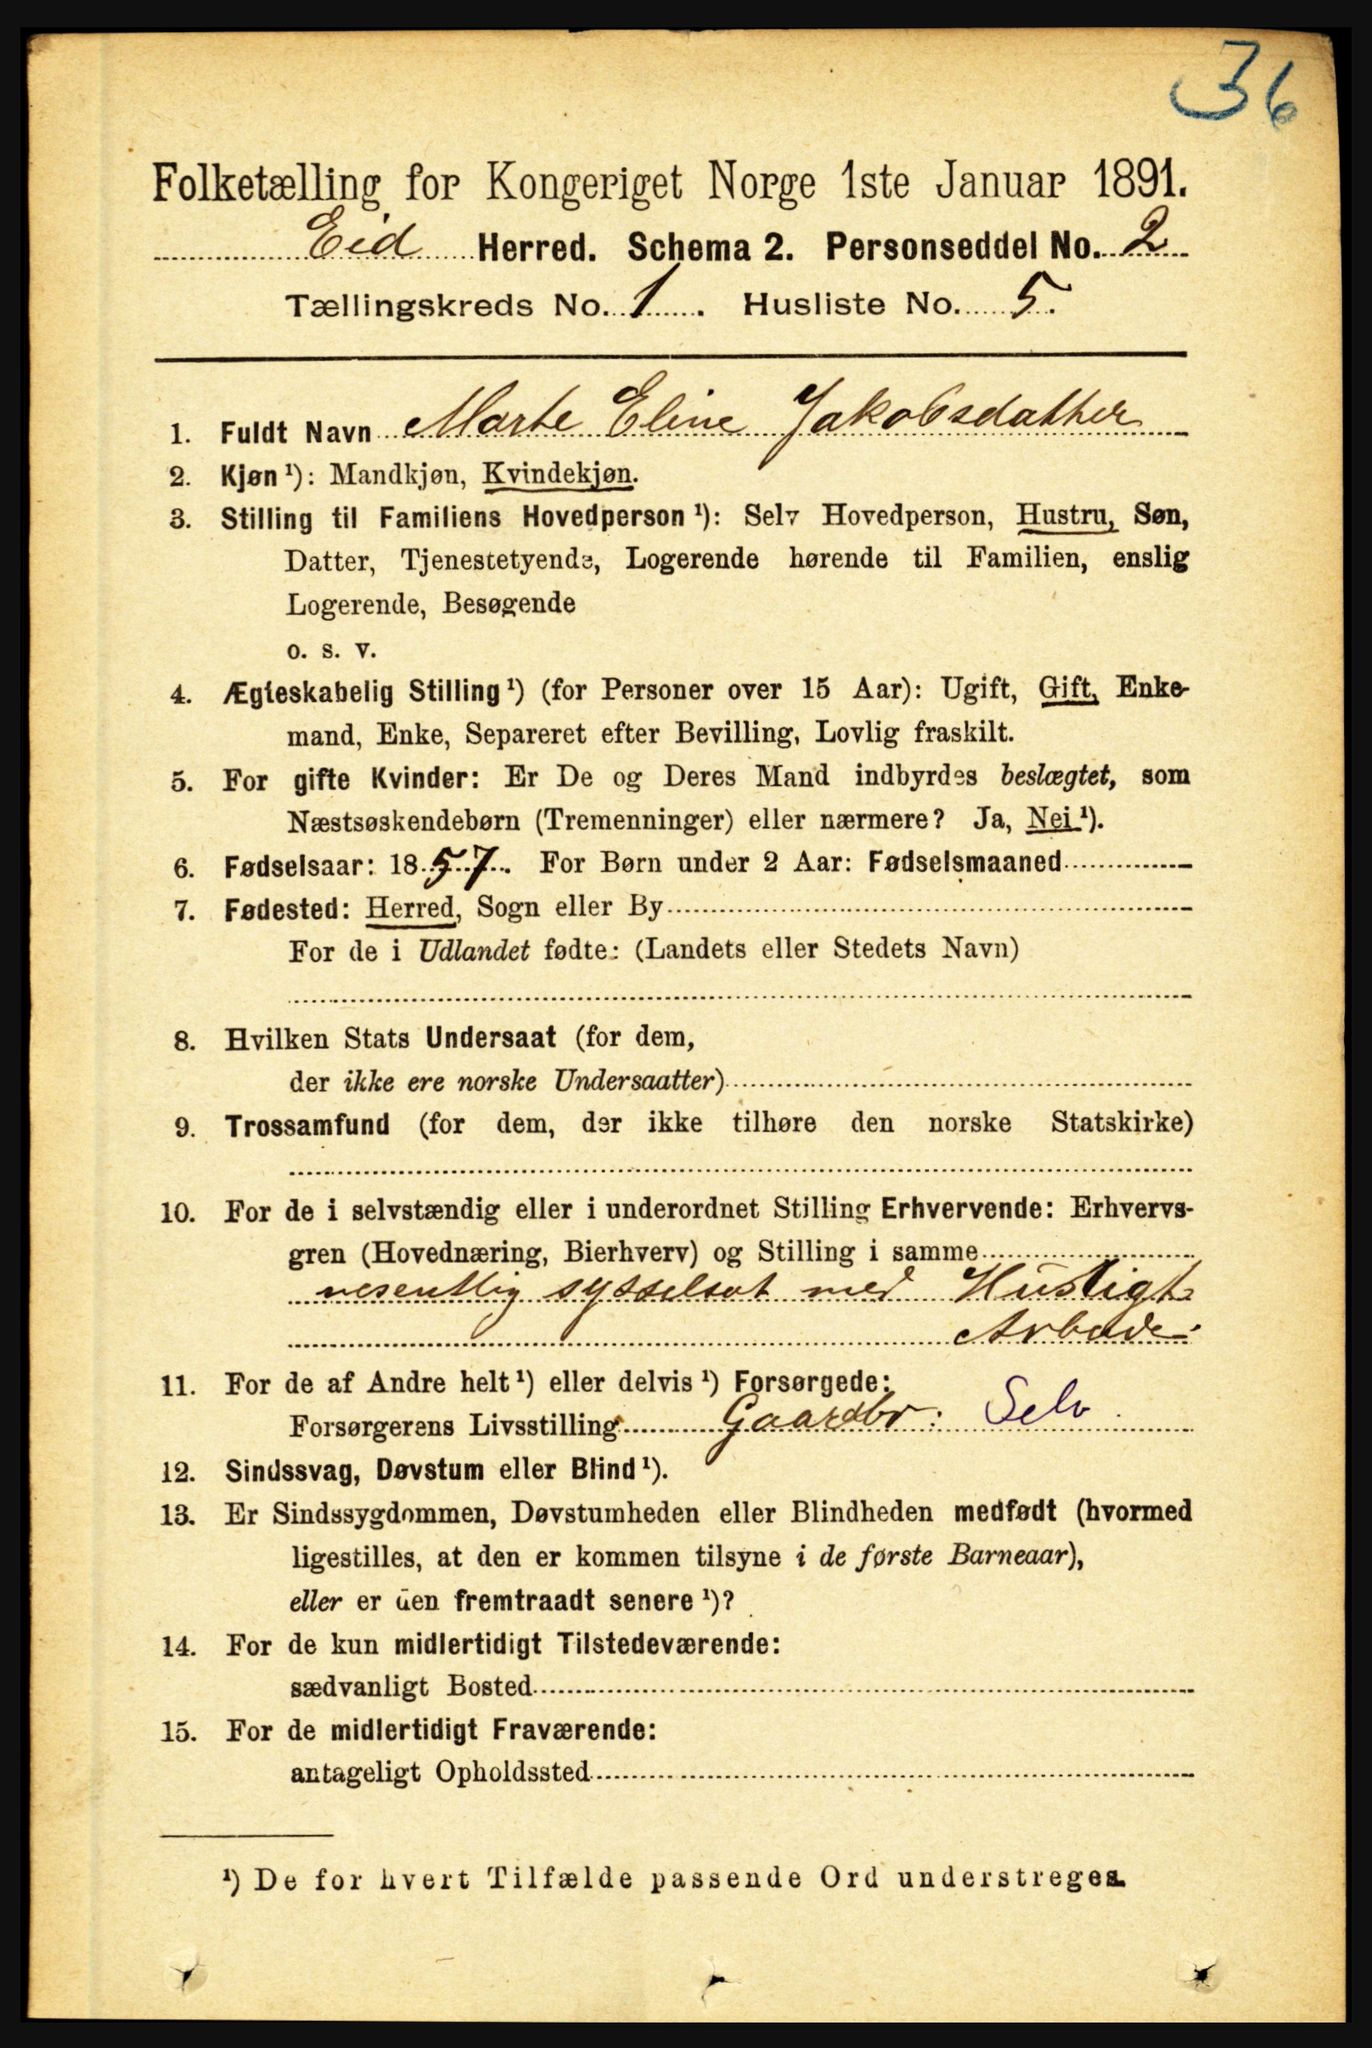 36
Folketælling for Kongeriget Norge 1ste Januar 1891.
Eid Herred. Schema 2. Personseddel No. 2
Tællingskreds No. 1. Husliste No. 5.
1. Fuldt Navn Marte Eline Jakobsdatter
2. Kjøn ¹): Mandkjøn, Kvindekjøn.
3. Stilling til Familiens Hovedperson ¹): Selv Hovedperson, Hustru, Søn,
Datter, Tjenestetyende, Logerende hørende til Familien, enslig
Logerende, Besøgende
o. s. v.
4. Ægteskabelig Stilling ¹) (for Personer over 15 Aar): Ugift, Gift, Enke-
mand, Enke, Separeret efter Bevilling, Lovlig fraskilt.
5. For gifte Kvinder: Er De og Deres Mand indbyrdes beslægtet, som
Næstsøskendebørn (Tremenninger) eller nærmere? Ja, Nei ¹).
6. Fødselsaar: 1857. For Børn under 2 Aar: Fødselsmaaned
7. Fødested: Herred, Sogn eller By
For de i Udlandet fødte: (Landets eller Stedets Navn)
8. Hvilken Stats Undersaat (for dem,
der ikke ere norske Undersaatter)
9. Trossamfund (for dem, der ikke tilhøre den norske Statskirke)
10. For de i selvstændig eller i underordnet Stilling Erhvervende: Erhvervs-
gren (Hovednæring, Bierhverv) og Stilling i samme
vesentlig sysselsat med Husligt
Arbeide.
11. For de af Andre helt ¹) eller delvis ¹) Forsørgede:
Forsørgerens Livsstilling Gaardbr: Selv.
12. Sindssvag, Døvstum eller Blind ¹).
13. Er Sindssygdommen, Døvstumheden eller Blindheden medfødt (hvormed
ligestilles, at den er kommen tilsyne i de første Barneaar),
eller er den fremtraadt senere ¹)?
14. For de kun midlertidigt Tilstedeværende:
sædvanligt Bosted
15. For de midlertidigt Fraværende:
antageligt Opholdssted
¹) De for hvert Tilfælde passende Ord understreges.